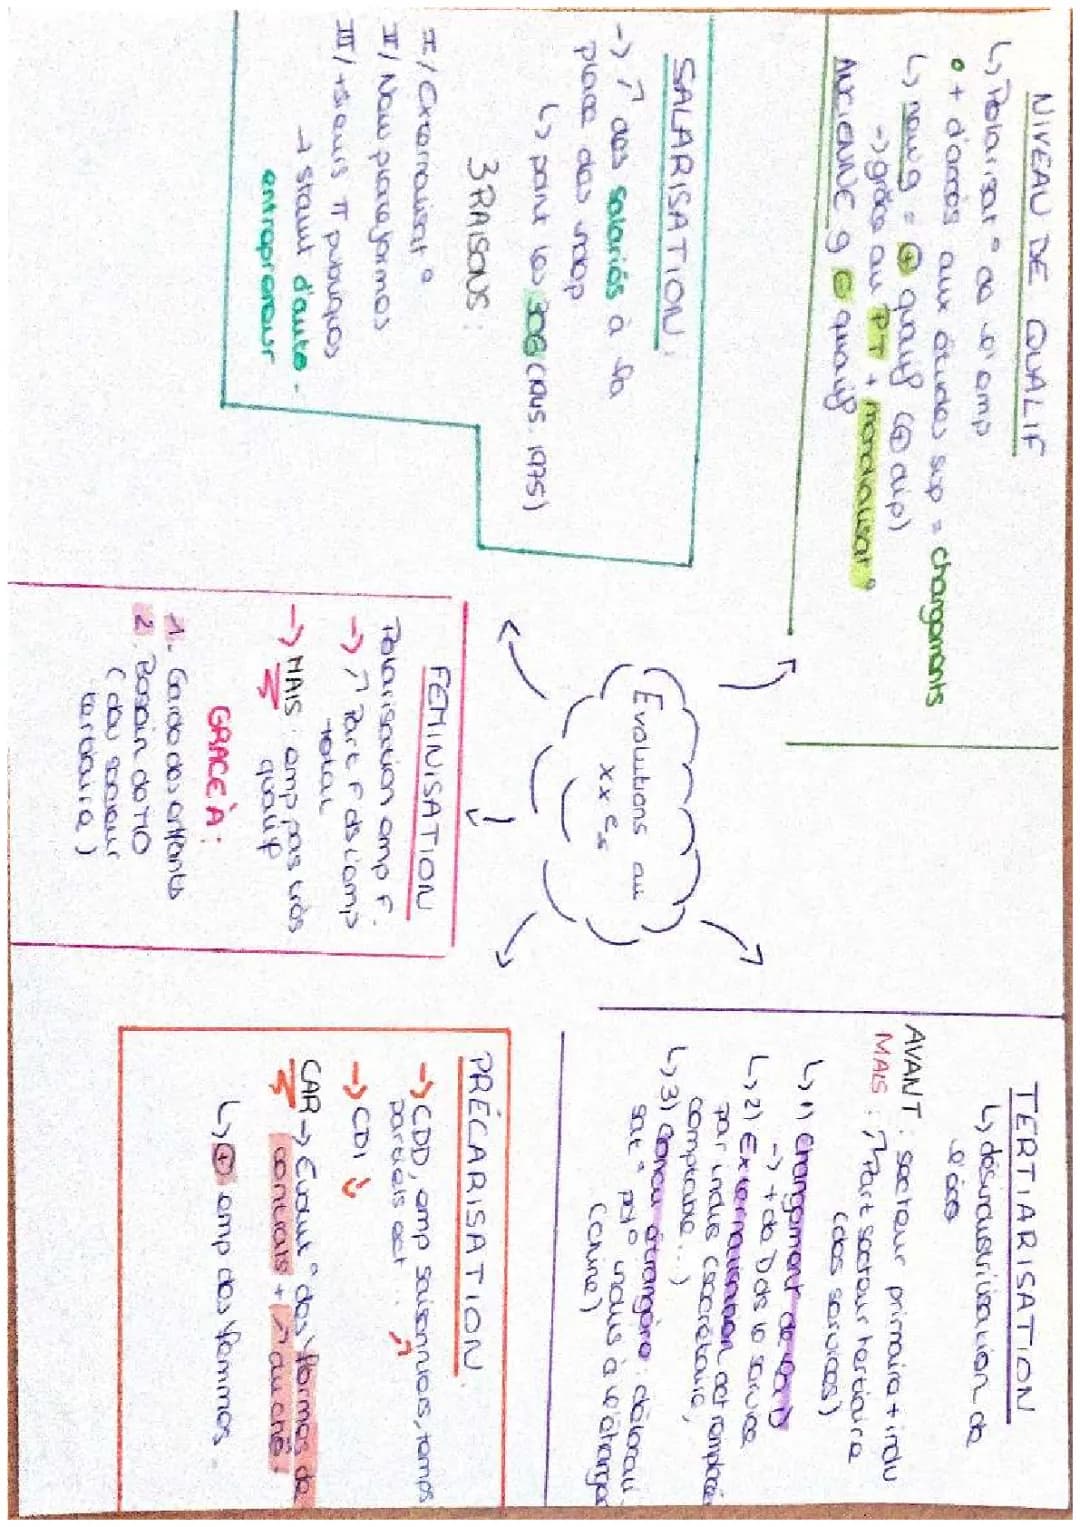 NIVEAU DE QUALIF
↳ Polarisat° de l'emp
• + d'accès aux études sup = changements
↳ nouv g = ⊕ qualif (⊕ dip)
→ grâce au PT + mondialisat°
ANCIENNE g ⊖ qualif
SALARISATION :
→ ↗ des salariés à la
place des indép
↳ pdnt les 30G (plus 1975)
3 RAISONS :
I / Externalisat°
II / Nouv plateformes
III / +sieurs π publiques
→ statut d'auto-
entrepreneur
Évolutions au
XXe s
FÉMINISATION
Polarisation emp F.
→ ↗ Part F ds l'emp
total
→ MAIS : emp pas très
qualif
GRACE À :
1. Garde des enfants
2. Besoin de MO
(du secteur
tertiaire)
TERTIARISATION
↳ désindustrialisation de
l'éco
AVANT : secteur primaire + indu
MAIS : ↗ Part secteur tertiaire
(des services)
↳ 1) Changement de
→ + de D ds le service
↳ 2) Externalisation act remplacée
par indus (secrétaire,
comptable...)
↳ 3) Concu étrangère : délocali-
sat° pt° indus à l'étranger
(Chine)
PRÉCARISATION.
→ CDD, emp saisonniers, temps
partiels ect... ↗
→ CDI ↘
CAR → Évolut° des formes de
contrats + ↗ du chô.
↳ ⊕ emp des femmes